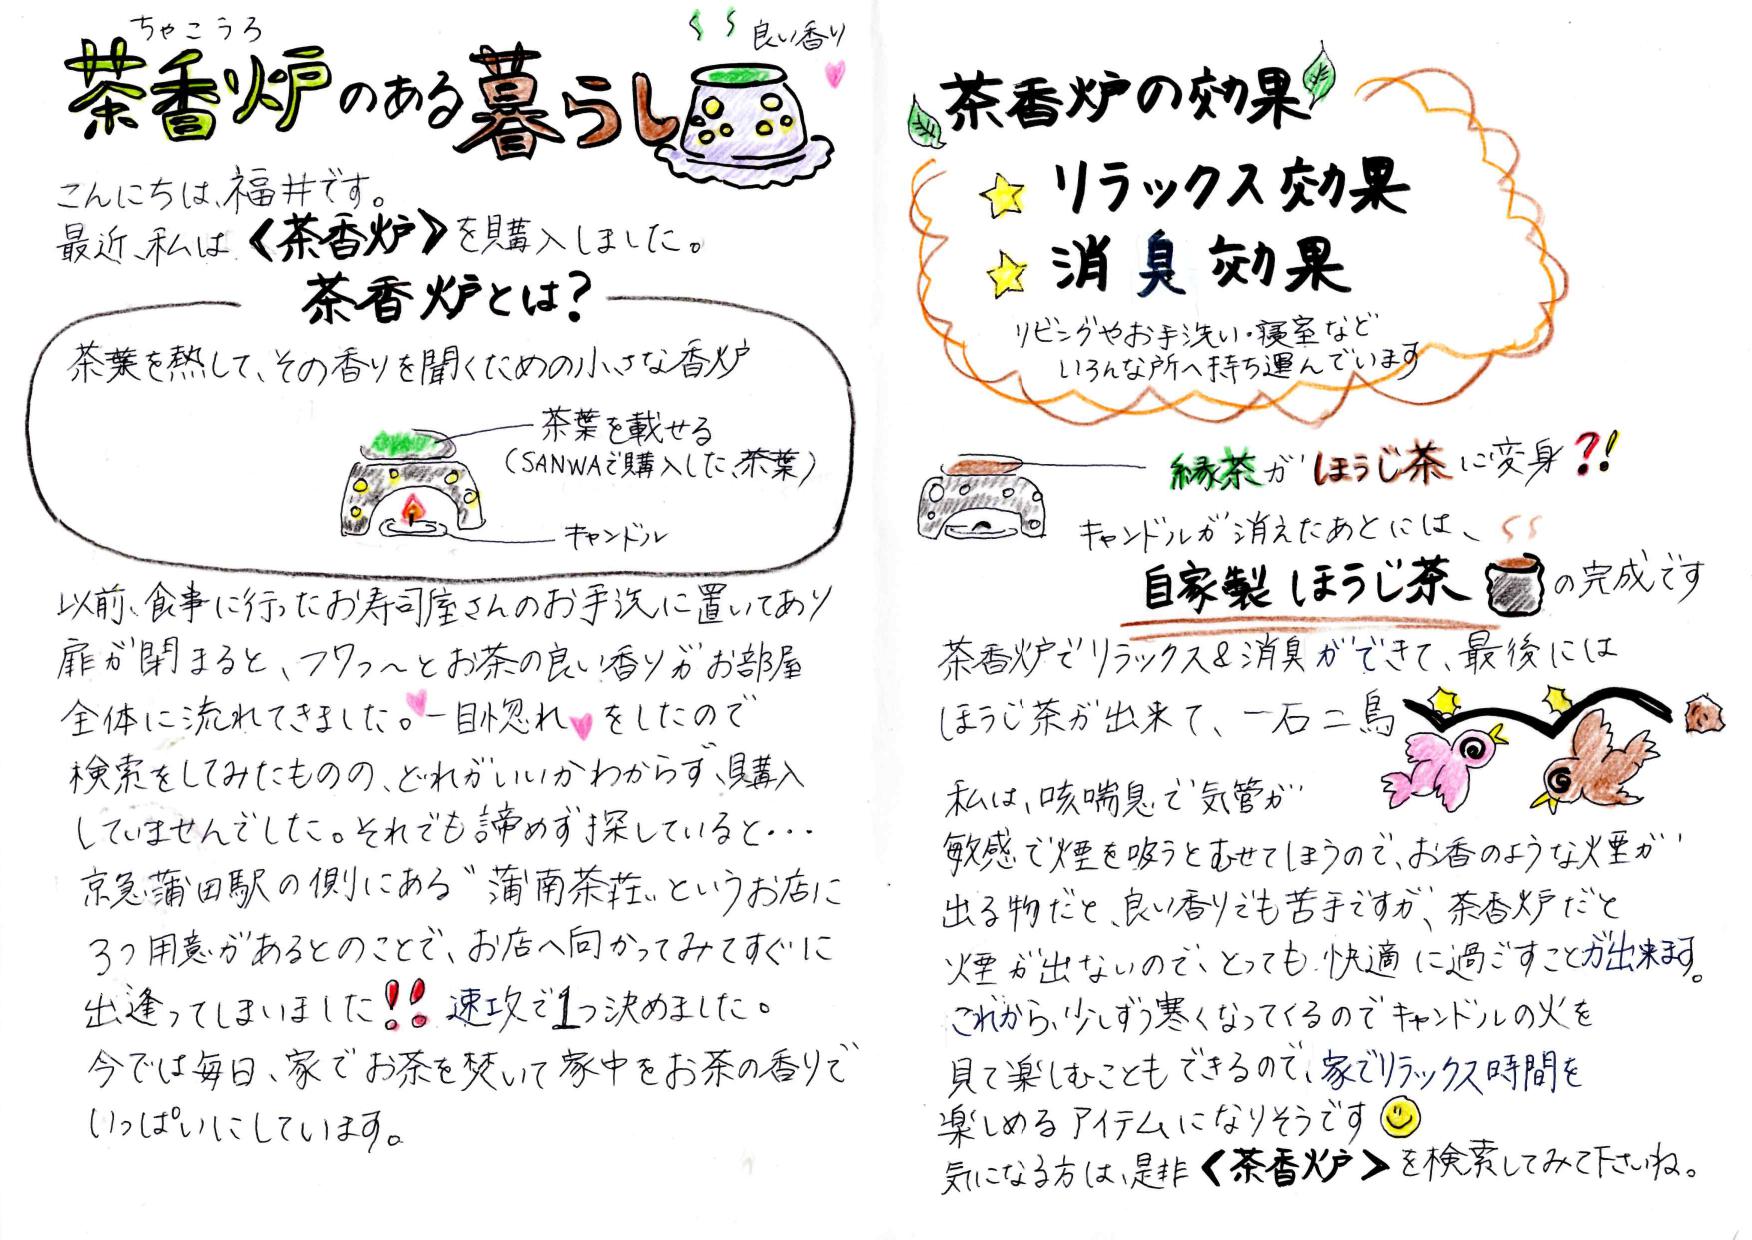 ちゃこうろ
茶香炉のある暮らし
良い香り
こんにちは、福井です。
最近、私は《茶香炉》を購入しました。
茶香炉とは?
茶葉を熱して、その香りを聞くための小さな香炉
茶葉を載せる
(SANWAで購入した、茶葉)
キャンドル
以前、食事に行ったお寿司屋さんのお手洗に置いてあり
扉が閉まると、フワっ〜とお茶の良い香りがお部屋
全体に流れてきました。一目惚れをしたので
検索をしてみたものの、どれがいいかわからず、購入
していませんでした。それでも諦めず探していると・・・
京急蒲田駅の側にある〝蒲南茶荘〟というお店に
3つ用意があるとのことで、お店へ向かってみてすぐに
出逢ってしまいました!! 速攻で1つ決めました。
今では毎日、家でお茶を焚いて家中をお茶の香りで
いっぱいにしています。
茶香炉の効果
リラックス効果
消臭効果
リビングやお手洗い・寝室など
いろんな所へ持ち運んでいます
緑茶がほうじ茶に変身?!
キャンドルが消えたあとには、
自家製ほうじ茶の完成です
茶香炉でリラックス&消臭ができて、最後には
ほうじ茶が出来て、一石二鳥
私は、咳喘息で気管が
敏感で煙を吸うとむせてしまうので、お香のような火煙が
出る物だと、良い香りでも苦手ですが、茶香炉だと
煙が出ないので、とっても快適に過ごすことが出来ます。
これから、少しずつ寒くなってくるのでキャンドルの火を
見て楽しむこともできるので、家でリラックス時間を
楽しめるアイテムになりそうです
気になる方は、是非《茶香炉》を検索してみて下さいね。